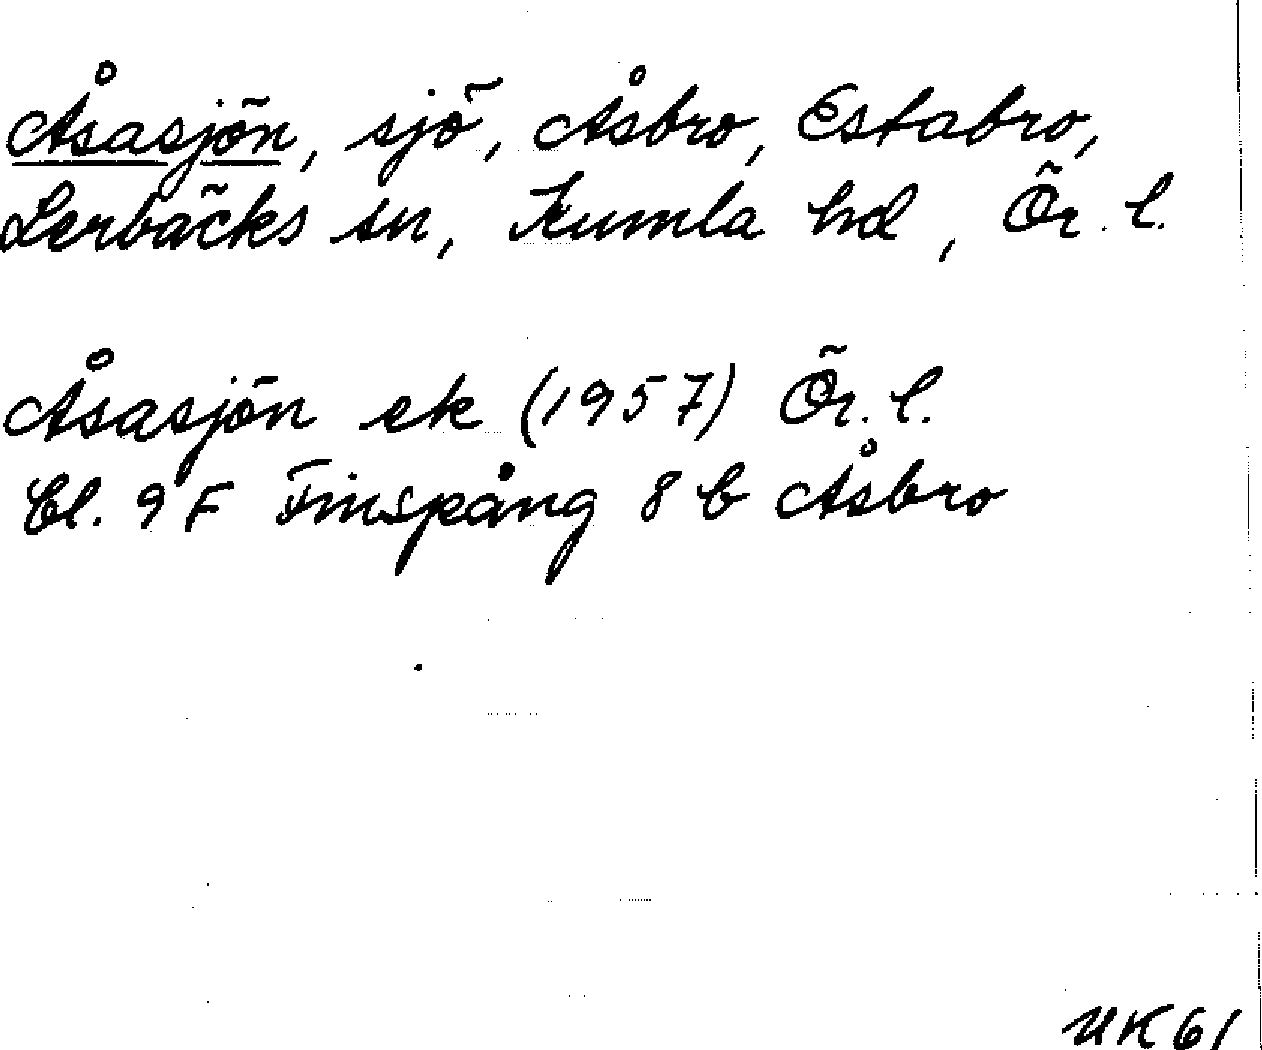 Åsasjön, sjö, Åsbro, Estabro,
Lerbäcks sn, Kumla hd, Ör. l.
Åsasjön ek (1957) Ör. l.
Bl. 9 F Finspång 8 b Åsbro
UK 61